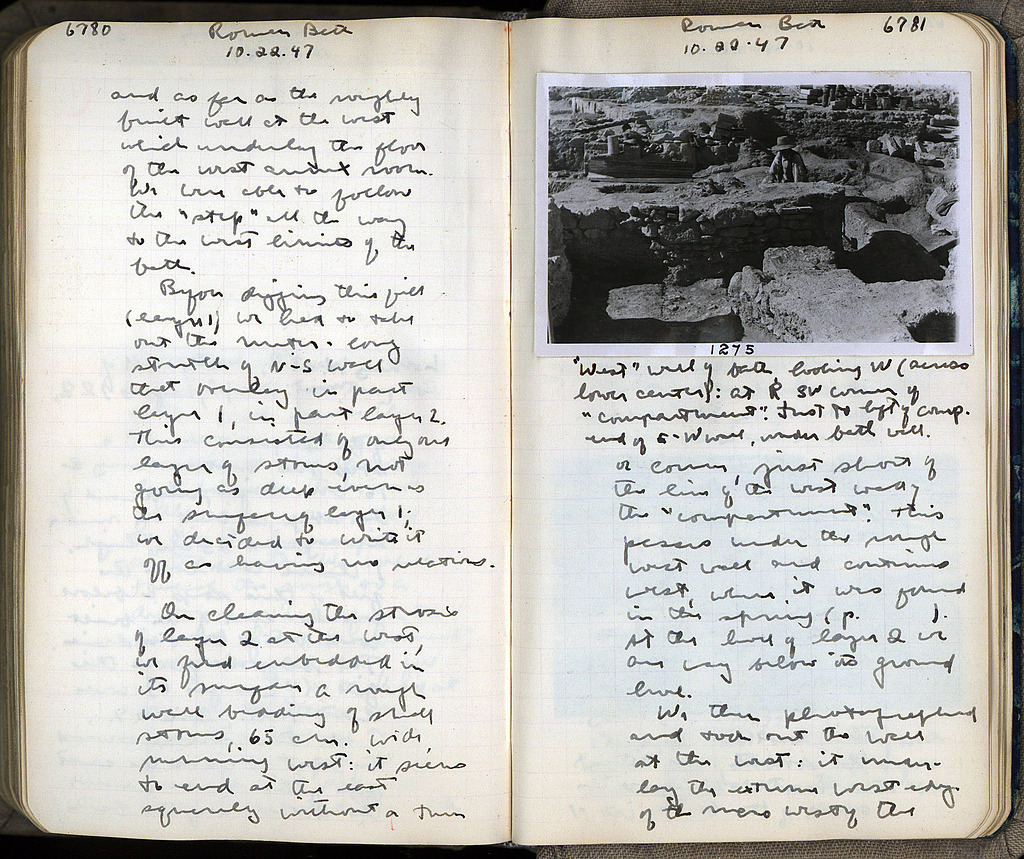 6780 Roman Bath
10.22.47
and as far as the roughly
built wall at the west
which underlay the floor
of the west annex room.
We were able to follow
the "step" all the way
to the west limits of the
bath.
Before digging this fill
(layer 1) we had to take
out the meter-long
stretch of N-S wall
that overlay in part
layer 1, in part layer 2.
This consisted of only one
layer of stones, not
going as deep even as
the surface of layer 1;
we decided to write it
off as having no relations.
On cleaning the strosis
of layer 2 at the west,
we find embedded in
its surface a rough
wall bedding of small
stones, 65 cm. wide,
running west: it seems
to end at the east
squarely without a turn
Roman Bath 6781
10.22.47
1275
"West" wall of bath looking W (across
lower center): at R SW corner of
"compartment". Just to left of comp.
end of E-W wall, under bath wall.
or corner, just short of
the line of the west wall of
the "compartment". This
passes under the rough
west wall and continues
west, where it was found
in the spring (p. ).
At the level of layer 2 we
are way below its ground
level.
We then photographed
and took out the wall
at the west: it under-
lay the extreme west edge
of the the